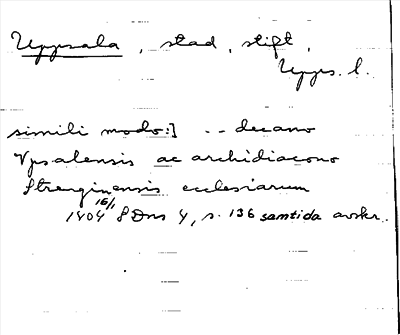 Uppsala, stad, stift,
Upps. l.
simili modo:] -- decano
Vpsalensis ac archidiacono
Strenginensis ecclesiarum
1404 16/1 SDns 4, s. 136 samtida avskr.